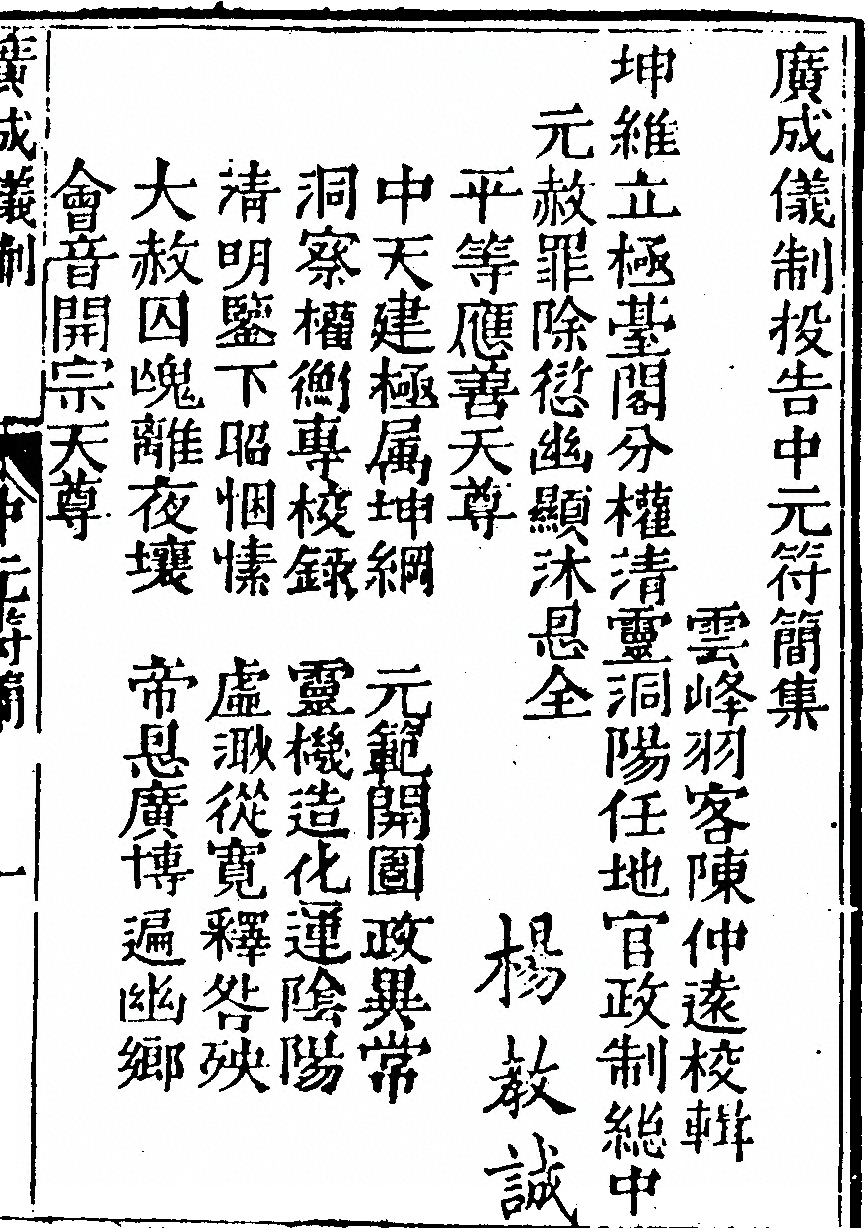 廣成儀制投告中元符簡集
雲峰羽客陳仲遠校輯
坤維立極臺閣分權清靈洞陽任地官政制総中
元赦罪除愆幽顯沐恩全
平等應善天尊
楊教誠
中天建極属坤綱　元範開圖政異常
洞察權衡專校錄　靈機造化運陰陽
清明鑒下昭悃愫　虛溆從寬釋咎殃
大赦囚魂離夜壤　帝恩廣博遍幽鄉
會音開宗天尊
廣成儀制
中元符簡
一